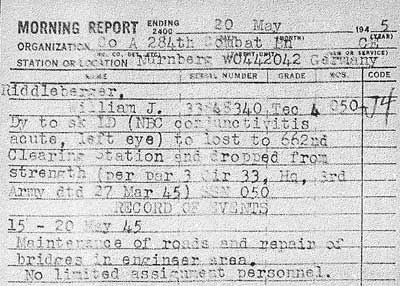 MORNING REPORT ENDING 2400 20 May 1945
(MONTH) (YEAR)
ORGANIZATION Co A 284th Combat Bn CE
STATION OR LOCATION Nurnberg WO442042 Germany
NAME SERIAL NUMBER GRADE MOS. CODE
Riddleberger,
William J. 33 48340 Tec 4 050 J4
Dy to sk LD (NBC conjunctivitis
acute, left eye) to lost to 662nd
Clearing Station and dropped from
strength (per par 3 Cir 33, Hq, 3rd
Army dtd 27 Mar 45) SSN 050
RECORD OF EVENTS
15 - 20 May 45
Maintenance of roads and repair of
bridges in engineer area.
No limited assignment personnel.